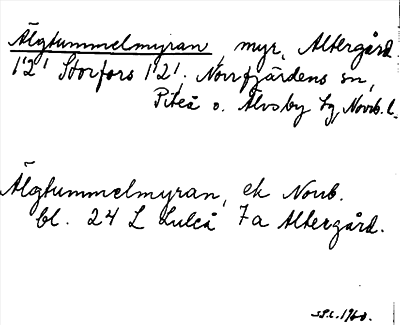 Älgtummelmyran, myr, Altergård
1'2' Storfors 1'2'. Norrfjärdens sn,
Piteå o. Älvsby tg Norrb. l.
Älgtummelmyran, ek Norrb.
bl. 24 L Luleå 7a Altergård.
1960.